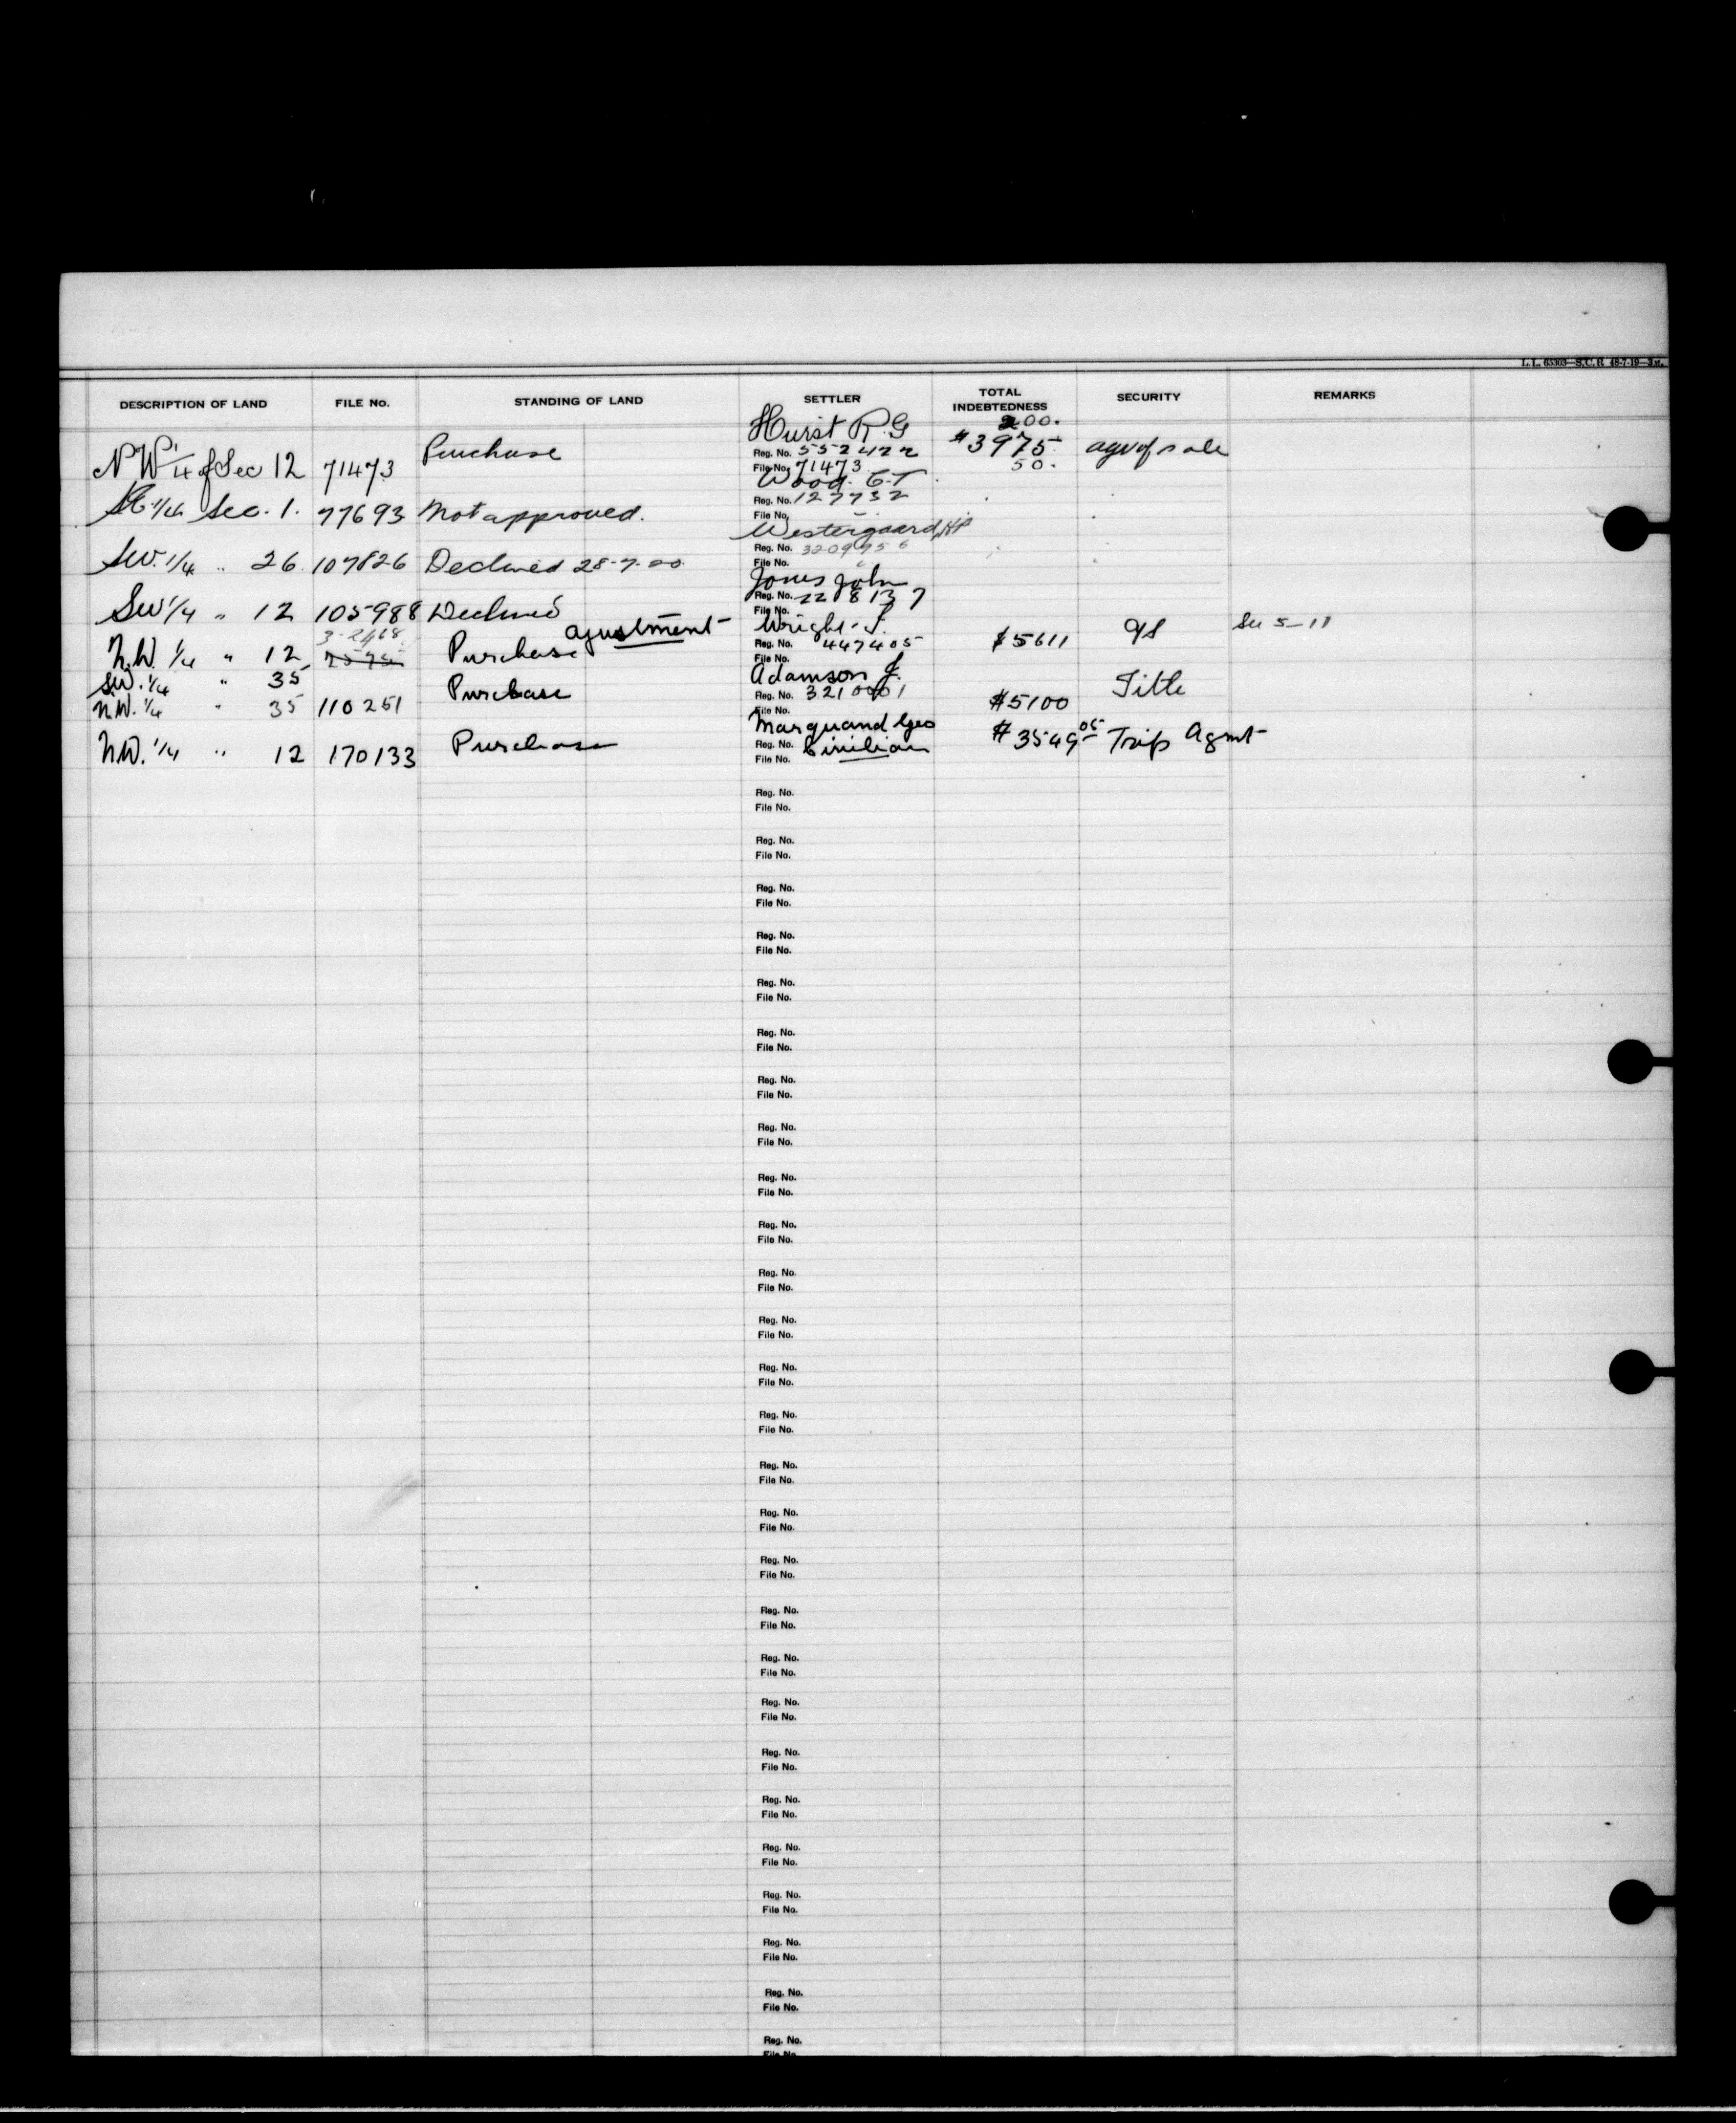 L. L. 65303—S.C.R. 48-7-19—3M.
DESCRIPTION OF LAND FILE No. STANDING OF LAND SETTLER TOTAL INDEBTEDNESS SECURITY REMARKS
Hurst R.G 200.
NW 1/4 of Sec 12 71473 Purchase Reg. No. 552422 $3975. agr of sale
File No. 71473 50.
Wood. G.T.
1/4 Sec. 1. 77693 Not approved. Reg. No. 127732
File No.
Westergaard
SW. 1/4 " 26 107826 Declined 28-7-20 Reg. No. 3209956
File No.
Jones John
SW 1/4 " 12 105988 Declined Reg. No. 228137
File No.
ajustment Wright J.
N.W. 1/4 " 12 Purchase Reg. No. 447405 $5611 98 See 5-11
File No.
SW. 1/4 " 35 Adamson J.
N.W. 1/4 " 35 110251 Purchase Reg. No. 3210901 $5100 Title
File No.
Marquand Geo
N.W. 1/4 " 12 170133 Purchase Reg. No. Civilian $3549.05 Trip Agmt
File No.
Reg. No.
File No.
Reg. No.
File No.
Reg. No.
File No.
Reg. No.
File No.
Reg. No.
File No.
Reg. No.
File No.
Reg. No.
File No.
Reg. No.
File No.
Reg. No.
File No.
Reg. No.
File No.
Reg. No.
File No.
Reg. No.
File No.
Reg. No.
File No.
Reg. No.
File No.
Reg. No.
File No.
Reg. No.
File No.
Reg. No.
File No.
Reg. No.
File No.
Reg. No.
File No.
Reg. No.
File No.
Reg. No.
File No.
Reg. No.
File No.
Reg. No.
File No.
Reg. No.
File No.
Reg. No.
File No.
Reg. No.
File No.
Reg. No.
File No.